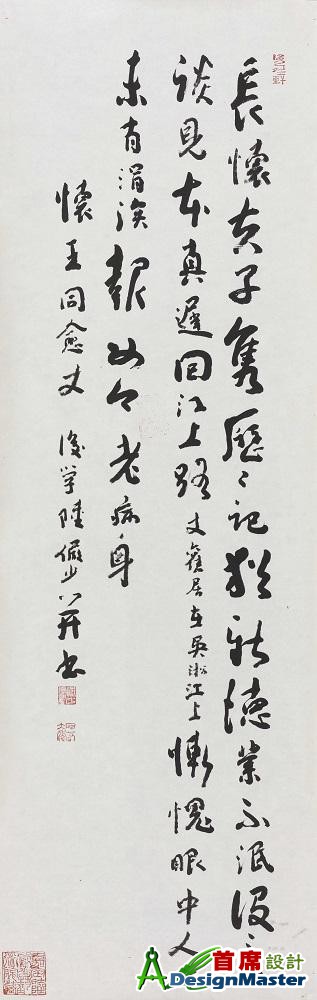 長懷夫子雋歷〻記猶新德業不泯沒言
談見本真遲回江上路丈舊居在吳淞江上慚愧眼中人
未有涓涘報如今老病身
懷王同愈丈 後學陸儼少并書
首席設計
DesignMaster